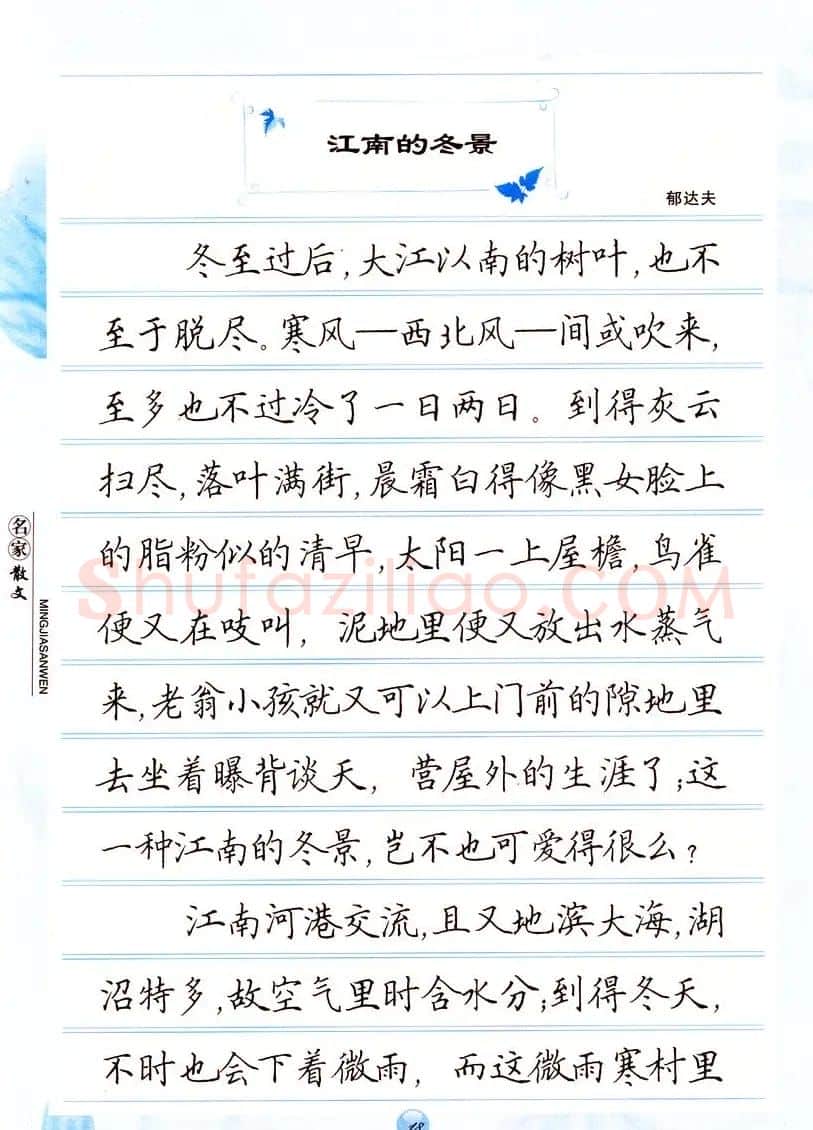 江南的冬景
郁达夫
冬至过后，大江以南的树叶，也不
至于脱尽。寒风—西北风—间或吹来，
至多也不过冷了一日两日。到得灰云
扫尽，落叶满街，晨霜白得像黑女脸上
的脂粉似的清早，太阳一上屋檐，鸟雀
便又在吱叫，泥地里便又放出水蒸气
来，老翁小孩就又可以上门前的隙地里
去坐着曝背谈天，营屋外的生涯了；这
一种江南的冬景，岂不也可爱得很么？
江南河港交流，且又地滨大海，湖
沼特多，故空气里时含水分；到得冬天，
不时也会下着微雨，而这微雨寒村里
名家散文
MINGJIASANWEN
Shufaziliao.COM